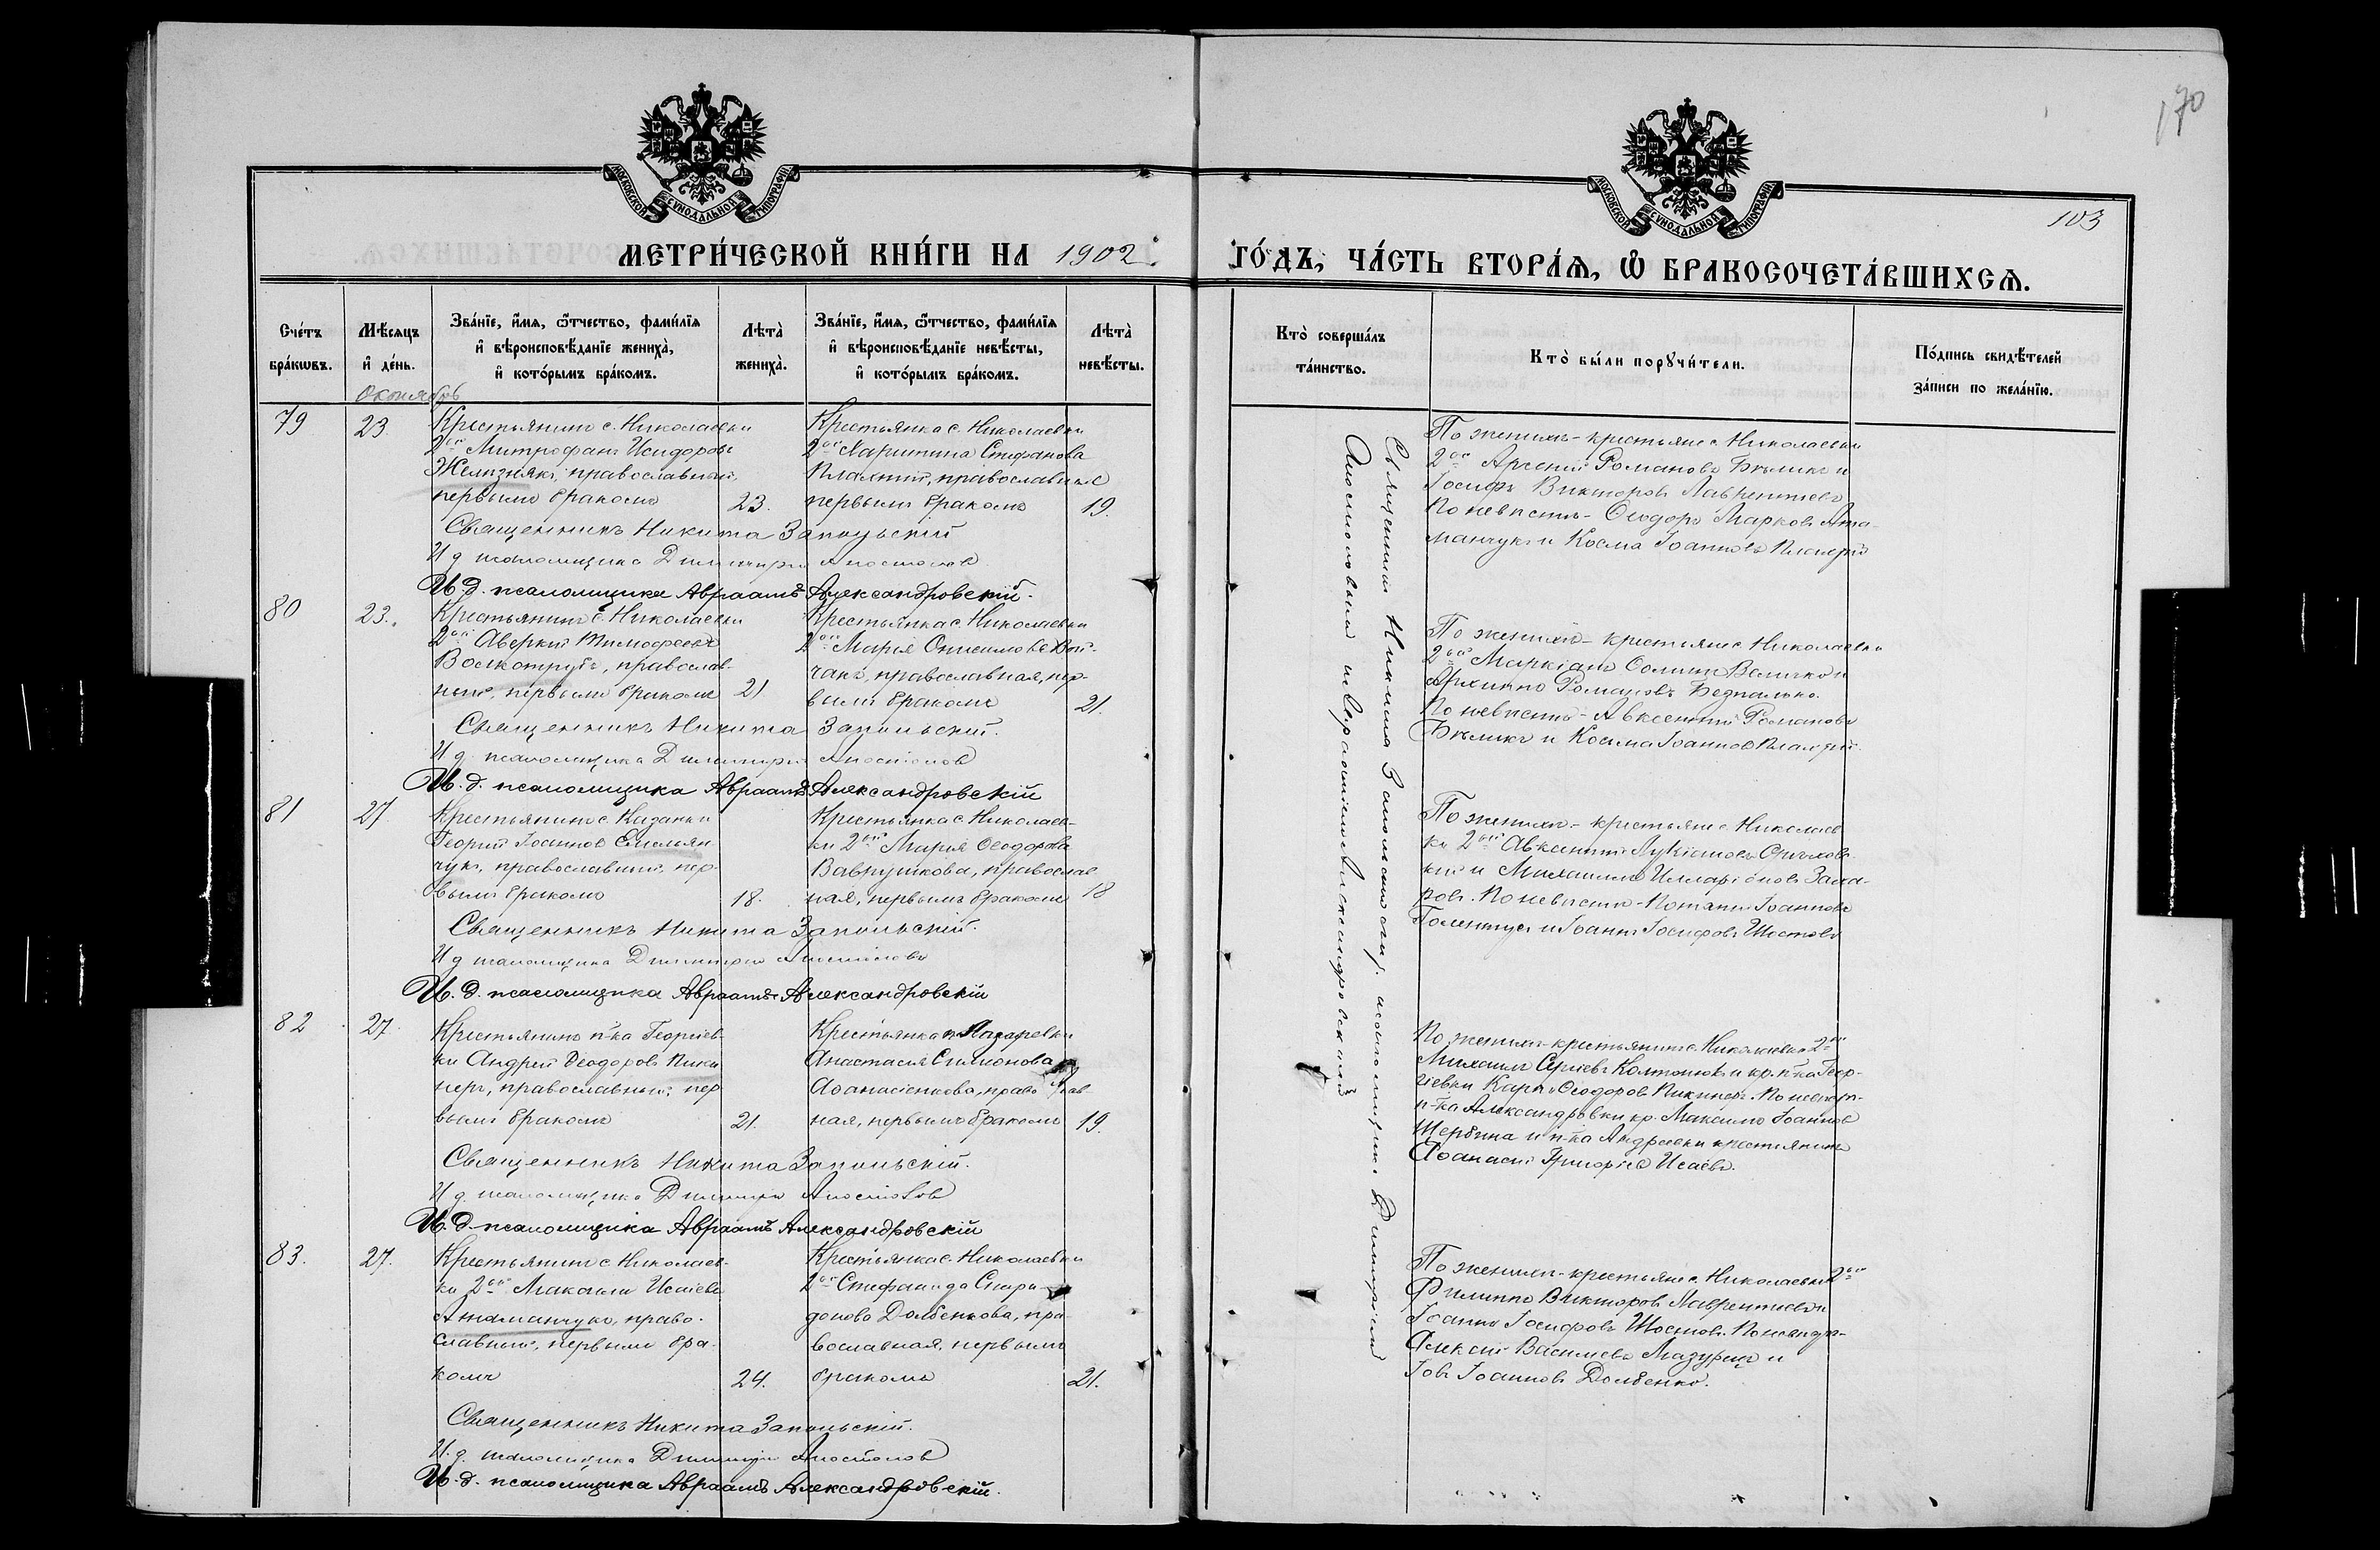 170
103
МОСКОВСКОЙ СѴНОДАЛЬНОЙ ТИПОГРАФІИ
МОСКОВСКОЙ СѴНОДАЛЬНОЙ ТИПОГРАФІИ
МЕТРИ́ЧЕСКОЙ КНИ́ГИ НА 1902 ГО́ДЪ, ЧА́СТЬ ВТОРА́Ѧ, Ѽ БРАКОСОЧЕТА́ВШИХСѦ.
Сче́тъ
бра́кѡвъ.
Мѣ́сяцъ
и҆ де́нь.
Зва́нїе, и҆́мѧ, ѻ҆́тчество, фами́лїя
и҆ вѣроисповѣ́данїе жениха̀,
и҆ кото́рымъ бра́комъ.
Лѣта̀
жениха̀.
Зва́нїе, и҆́мѧ, ѻ҆́тчество, фами́лїя
и҆ вѣроисповѣ́данїе невѣ́сты,
и҆ кото́рымъ бра́комъ.
Лѣта̀
невѣ́сты.
Кто̀ соверша́лъ
та́инство.
Кто̀ бы́ли порꙋчи́тели.
По́дпись свидѣ́телей
за́писи по жела́нїю.
Октябрь
79
23
Крестьянинъ с. Николаевки
2ой Митрофанъ Исидоровъ
Желѣзнякъ, православный,
первымъ бракомъ
23.
Крестьянка с. Николаевки
2ой Харитина Стефанова
православная
первымъ бракомъ
19.
Священникъ Никита Запольскій
И д псаломщика Димитрій Апостоловъ
И. д. псаломщика Авраамъ Александровскій.
По женихѣ - крестьяне с Николаевки
2ой Арсеній Романовъ Бѣликъ и
Іосифъ Викторовъ Лаврентіевъ
По невѣстѣ - Ѳеодоръ Марковъ Ата-
манчукъ и Косма Іоанновъ
80
23.
Крестьянинъ с. Николаевки
2ой Аверкій Тимофеевъ
Волкотрубъ, православ-
ный, первымъ бракомъ
21
Крестьянка с. Николаевки
2ой Марія Онисимова
чакъ, православная, пер-
вымъ бракомъ
21.
Священникъ Никита Запольскій.
И д. псаломщика Димитрій Апостоловъ
И. д. псаломщика Авраамъ Александровскій
По женихѣ - крестьяне с Николаевки
2ой Маркіанъ Величко и
Архиппъ Романовъ Безпалько.
По невѣстѣ - Авксентій Романовъ
Бѣликъ и Косма Іоанновъ
81
27
Крестьянинъ с. Казанки
Георгій Іоанновъ Емельян-
чукъ, православный, пер-
вымъ бракомъ
18.
Крестьянка с. Николаев-
ки 2ой Марія Ѳеодорова
Ваврушкова, православ-
ная, первымъ бракомъ
18
Священникъ Никита Запольскій.
И д псаломщика Димитрій Апостоловъ
И. д. псаломщика Авраамъ Александровскій
По женихѣ - крестьяне с Николаев-
ки 2ой Авксентій Лукіановъ
кій и Михаилъ Илларіоновъ Заха-
ровъ. По невѣстѣ - Потапій Іоанновъ
и Іоаннъ Іосифовъ Шостовъ
82
27.
Крестьянинъ п-ка Георгіев-
ки Андрей Ѳеодоровъ Пики-
неръ, православный, пер-
вымъ бракомъ
21.
Крестьянка п. Лазаревки
Анастасія Симіонова
Аѳанасіенкова, православ-
ная, первымъ бракомъ
19.
Священникъ Никита Запольскій.
И д. псаломщика Димитрій Апостоловъ
И. д. псаломщика Авраамъ Александровскій
По женихѣ - крестьянинъ с. Николаевки 2ой
Михаилъ Сергіевъ Колтоновъ и кр. п-ка Геор-
гіевки Карпъ Ѳеодоровъ Пикинеръ. По невѣстѣ-
п-ка Александровки кр. Максимъ Іоанновъ
Щербина и п-ка Андреевки крестьянинъ
Аѳанасій Григоріевъ Исаевъ.
83.
27.
Крестьянинъ с Николаев-
ки 2ой Максимъ Исаіевъ
Атаманчукъ, право-
славный, первымъ бра-
комъ
24.
Крестьянка с. Николаевки
2ой Стефанида Спири-
донова Долбенкова, пра-
вославная, первымъ
бракомъ
21.
Священникъ Никита Запольскій.
И. д. псаломщика Димитрій Апостоловъ
И. д. псаломщика Авраамъ Александровскій.
По женихѣ - крестьяне с. Николаевки 2ой
Филиппъ Викторовъ Лаврентіевъ и
Іоаннъ Іосифовъ Шостовъ. По невѣстѣ-
Алексій Васильевъ Мазурецъ и
Іовъ Іоанновъ Долбенко.
Священникъ Никита Запольскій съ и. д. псаломщика Димитріемъ
Апостоловымъ и Авраамомъ Александровскимъ